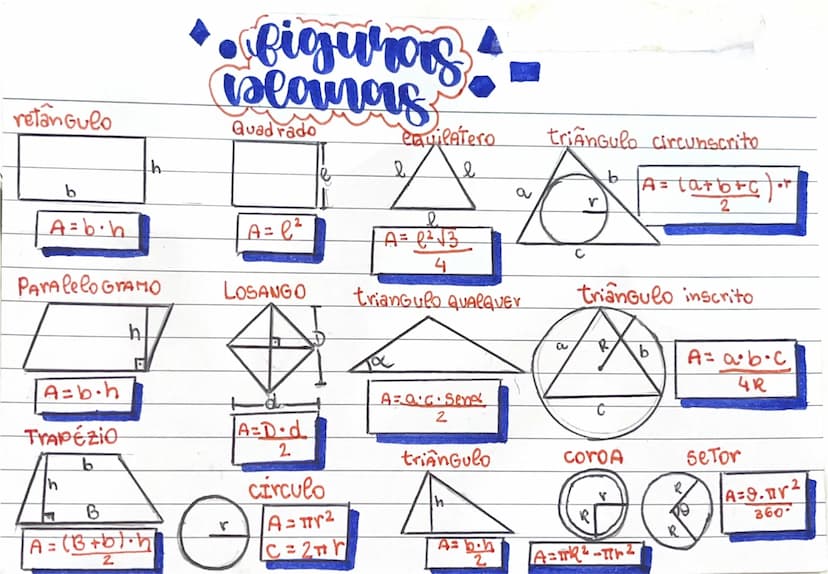 figuras
planas
retângulo
h
b
A = b·h
quadrado
l
A = l²
equilátero
l l
l
A = l²√3/4
triângulo circunscrito
a b
r
c
A = (a+b+c/2)·r
Paralelogramo
h
A = b·h
Losango
D
d
A = D·d/2
triangulo qualquer
α
A = a·c·senα/2
triângulo inscrito
a R b
c
A = a·b·c/4R
Trapézio
b
h
B
A = (B+b)·h/2
círculo
r
A = πr²
C = 2πr
triângulo
h
A = b·h/2
coroa
r
R
A = πR² - πr²
setor
R
θ
R
A = θ·πr²/360°